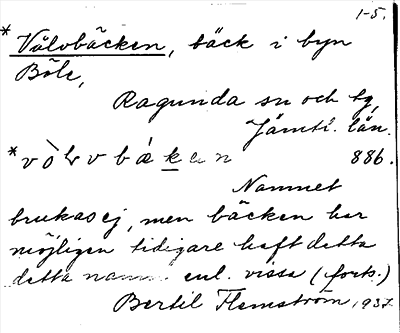 1-5.
*Vålvbäcken, bäck i byn
Böle,
Ragunda sn och tg,
Jämtl. län.
886.
Namnet
brukas ej, men bäcken har
möjligen tidigare haft detta
detta namn enl. vissa (forts.)
Bertil Flemström, 1937.